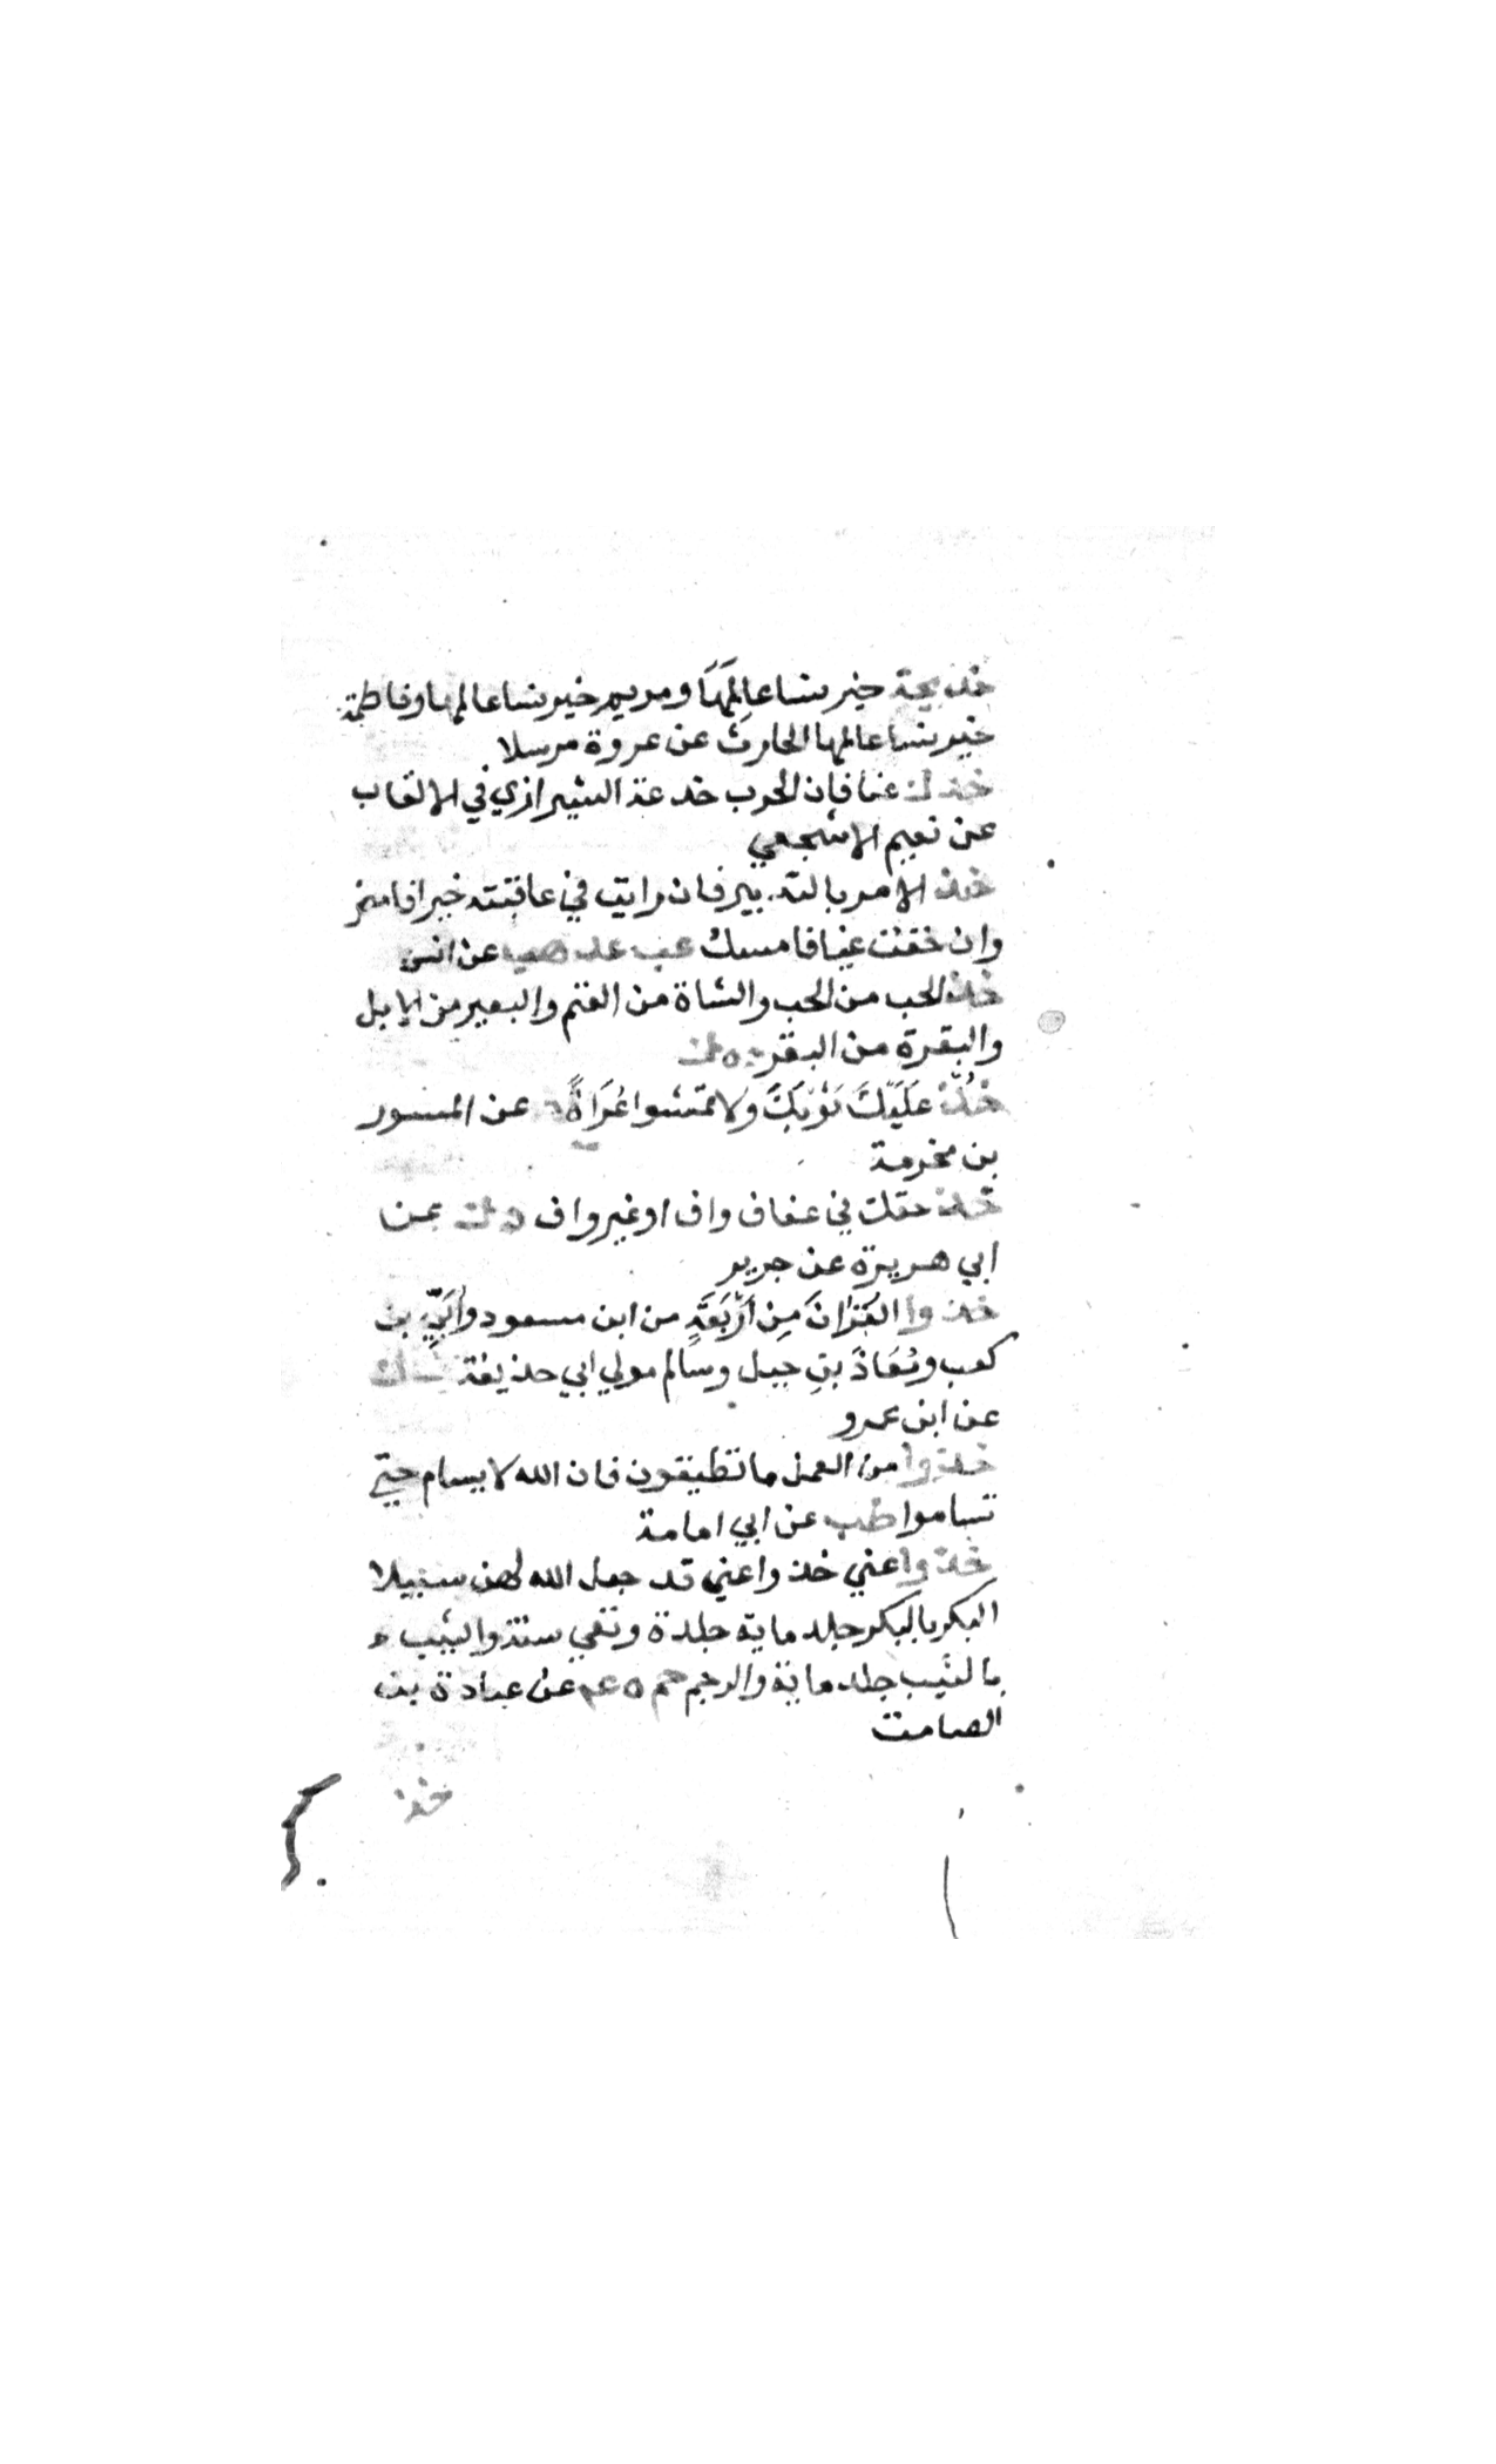 خديجة خير نسا عالمَهَا ومريم خير نسا عالمها وفاطمة
خير نسا عالمها الحارث عن عروة مرسلا
خذل عنا فان الحرب خدعة الشيرازي في الالقاب
عن نعيم الاشجعي
خذ الامر بالتدبير فان رايت في عاقبته خيرا فامض
وان خفت غيا فامسك عب عد هب عن انس
خذ الحب من الحب والشاة من الغنم والبعير من الابل
والبقرة من البقر د ه ك
خُذْ عَلَيْكَ ثَوْبَكَ ولا تمشوا عُرَاةً عن المسور
بن مخرمة
خذ حقك في عفاف واف او غير واف ه ك عن
ابي هريرة عن جرير
خذوا القُرْانَ مِن أَرْبَعَةٍ من ابن مسعود وأُبَيِّ بن
كعب ومُعَاذَ بنِ جبل وسالم مولي ابي حذيفة ت ك
عن ابن عمرو
خذوا من العمل ما تطيقون فان الله لا يسام حتي
تساموا طب عن ابي امامة
خذوا عني خذوا عني قد جعل الله لهن سبيلا
البكر بالبكر جلد ماية جلدة ونفي سنة والثيب
بالثيب جلد ماية والرجم حم م عه عن عبادة بن
الصامت
خذ